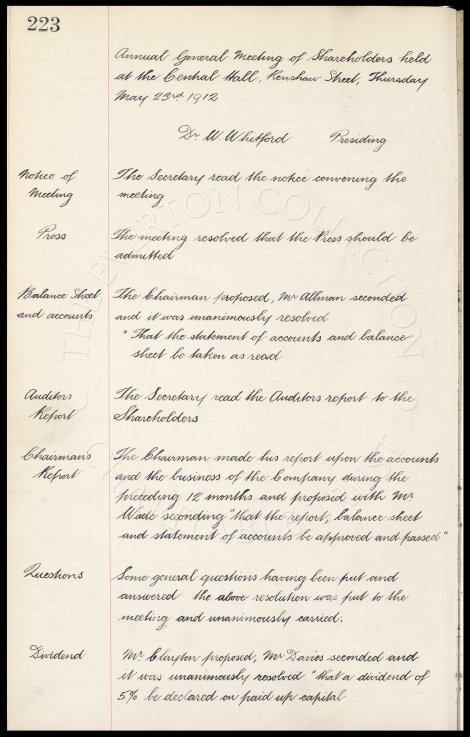 223
Annual General Meeting of Shareholders held
at the Central Hall, Renshaw Street, Thursday
May 23rd 1912
Dr W. Whitford Presiding
Notice of
Meeting
The Secretary read the notice convening the
meeting
Press
The meeting resolved that the Press should be
admitted
Balance Sheet
and accounts
The Chairman proposed, Mr Allman seconded
and it was unanimously resolved
"That the statement of accounts and balance
sheet be taken as read
Auditors
Report
The Secretary read the Auditors report to the
Shareholders
Chairman's
Report
The Chairman made his report upon the accounts
and the business of the Company during the
preceding 12 months and proposed with Mr
Wade seconding "that the report, balance sheet
and statement of accounts be approved and passed"
Questions
Some general questions having been put and
answered the above resolution was put to the
meeting and unanimously carried.
Dividend
Mr Clayton proposed, Mr Davies seconded and
it was unanimously resolved "that a dividend of
5% be declared on paid up capital
THE EVERTON COLLECTION